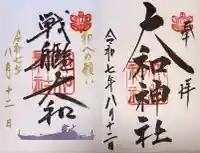 奉拝
大和神社
令和七年八月十二日
平和への願い
戦艦大和
令和七年
八月十二日